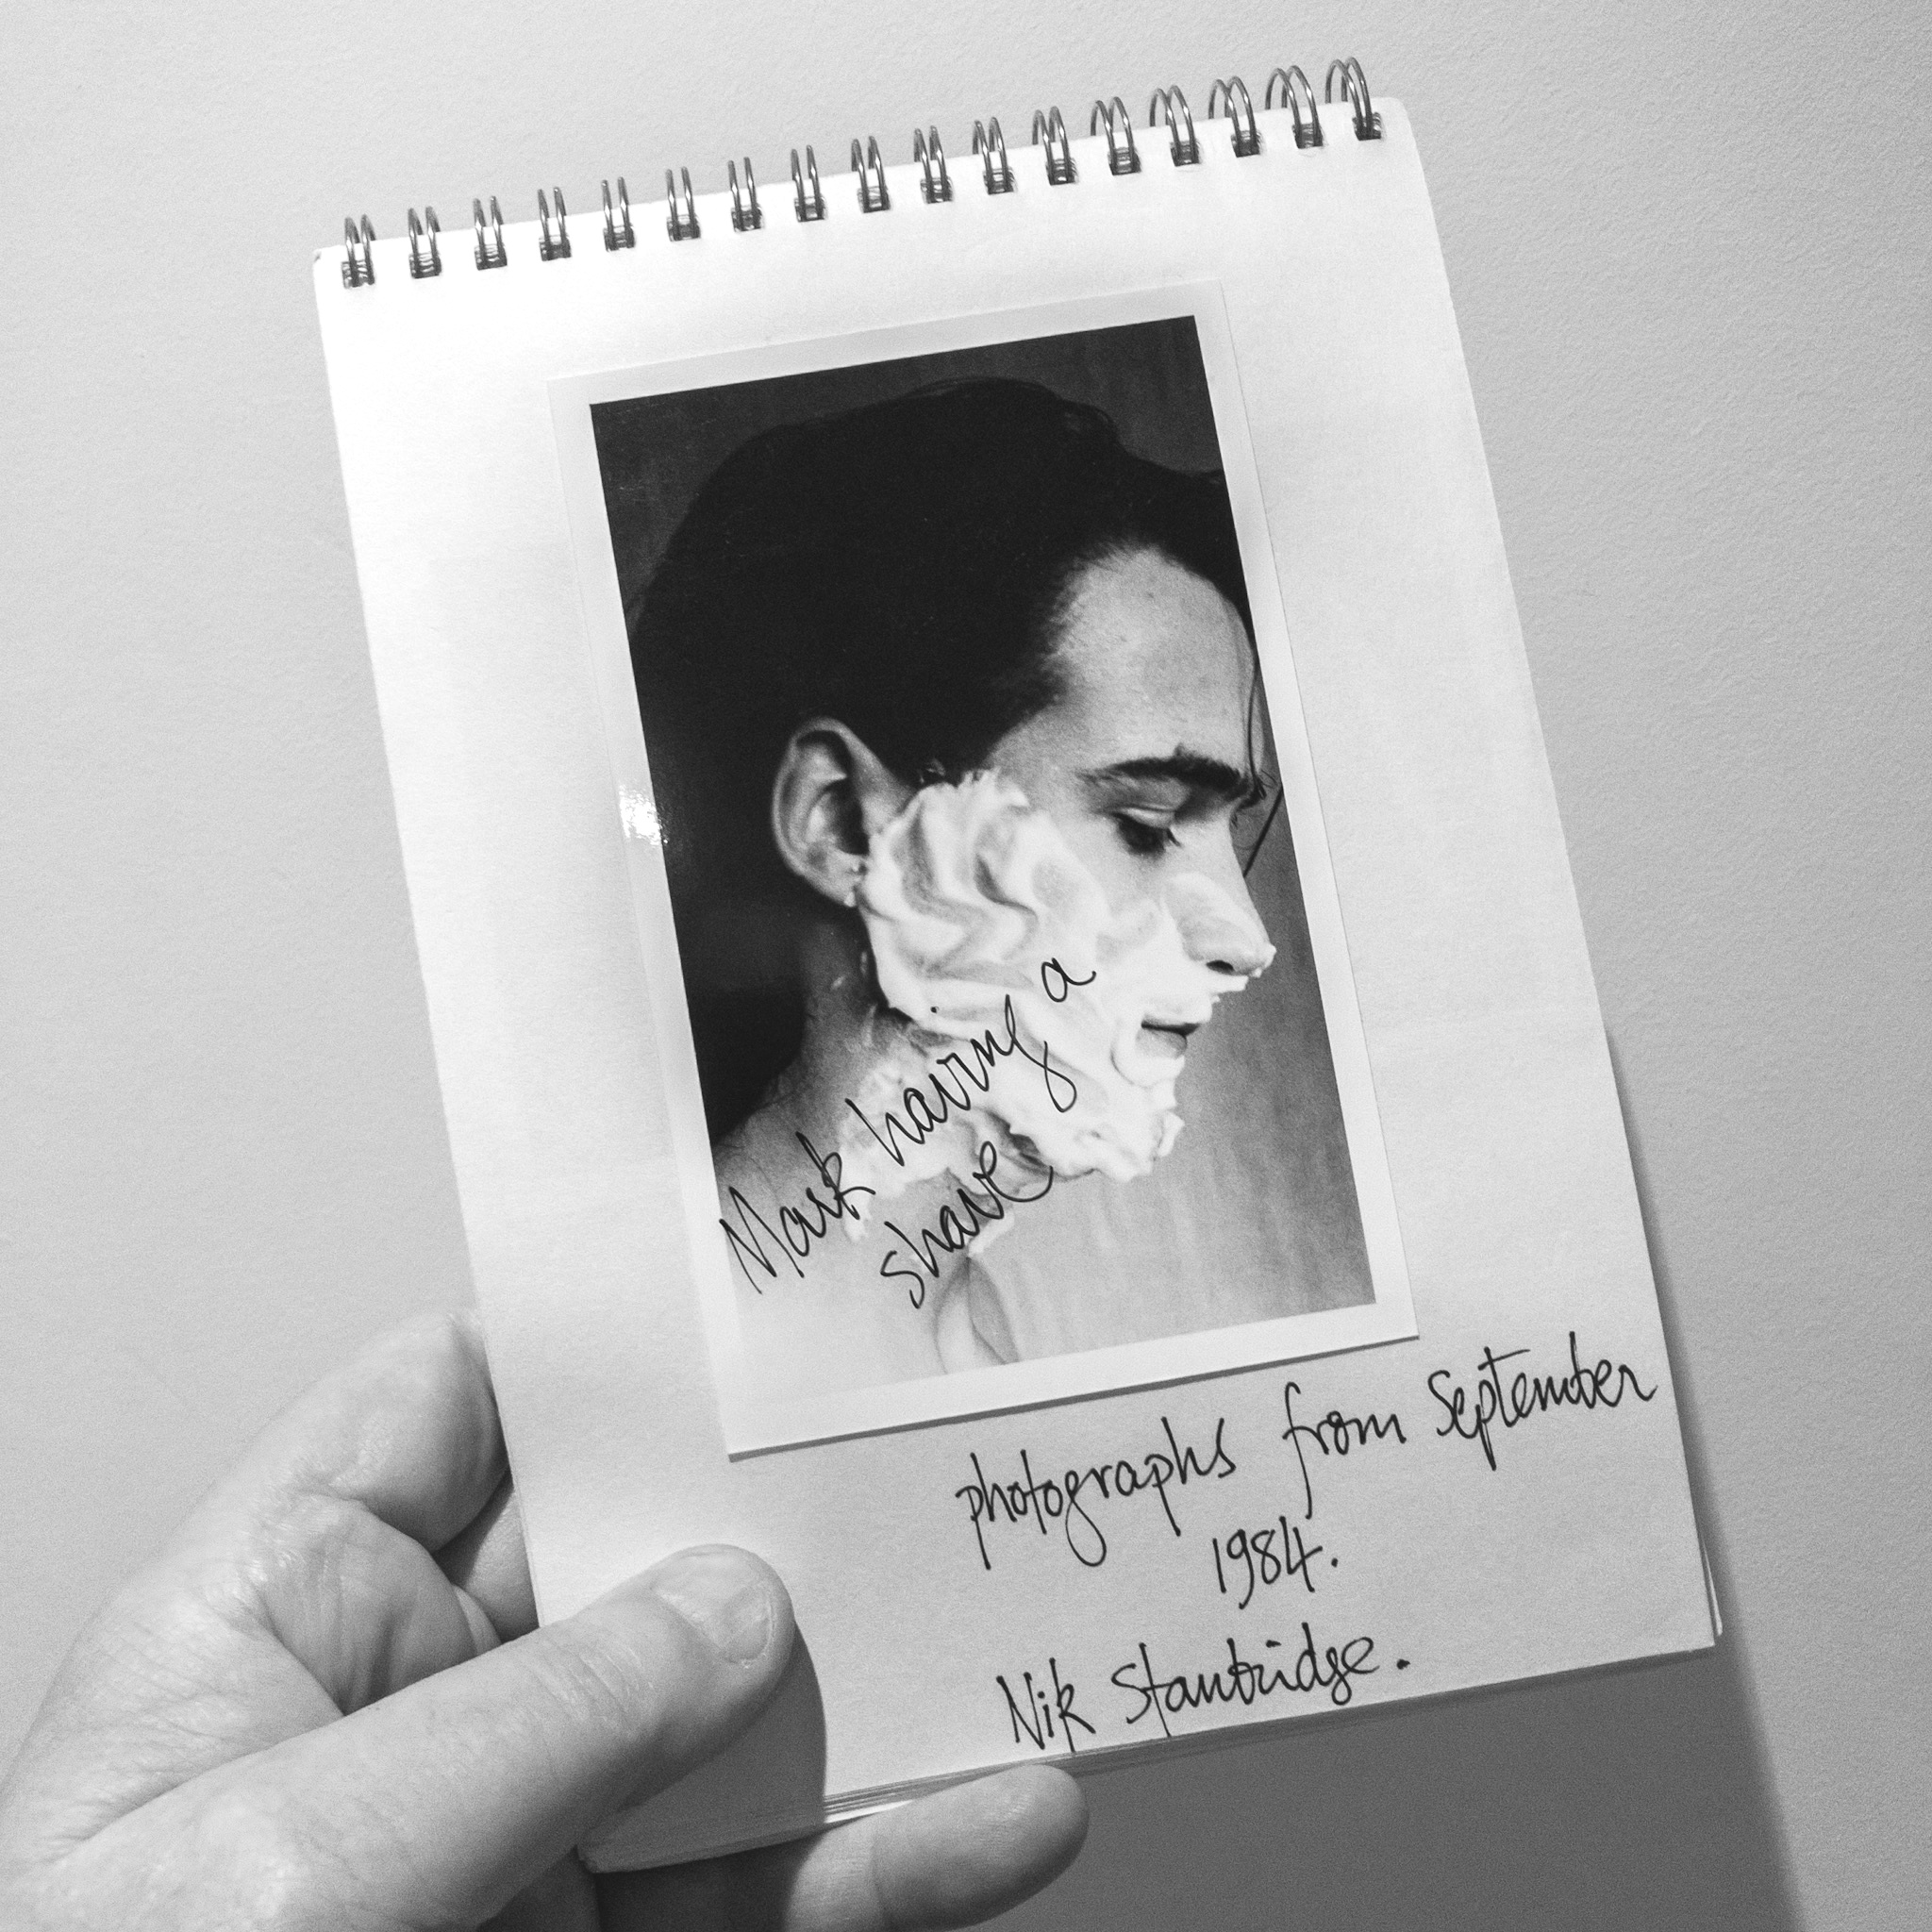 Mark having a
shave
photographs from September
1984.
Nik Stanbridge.